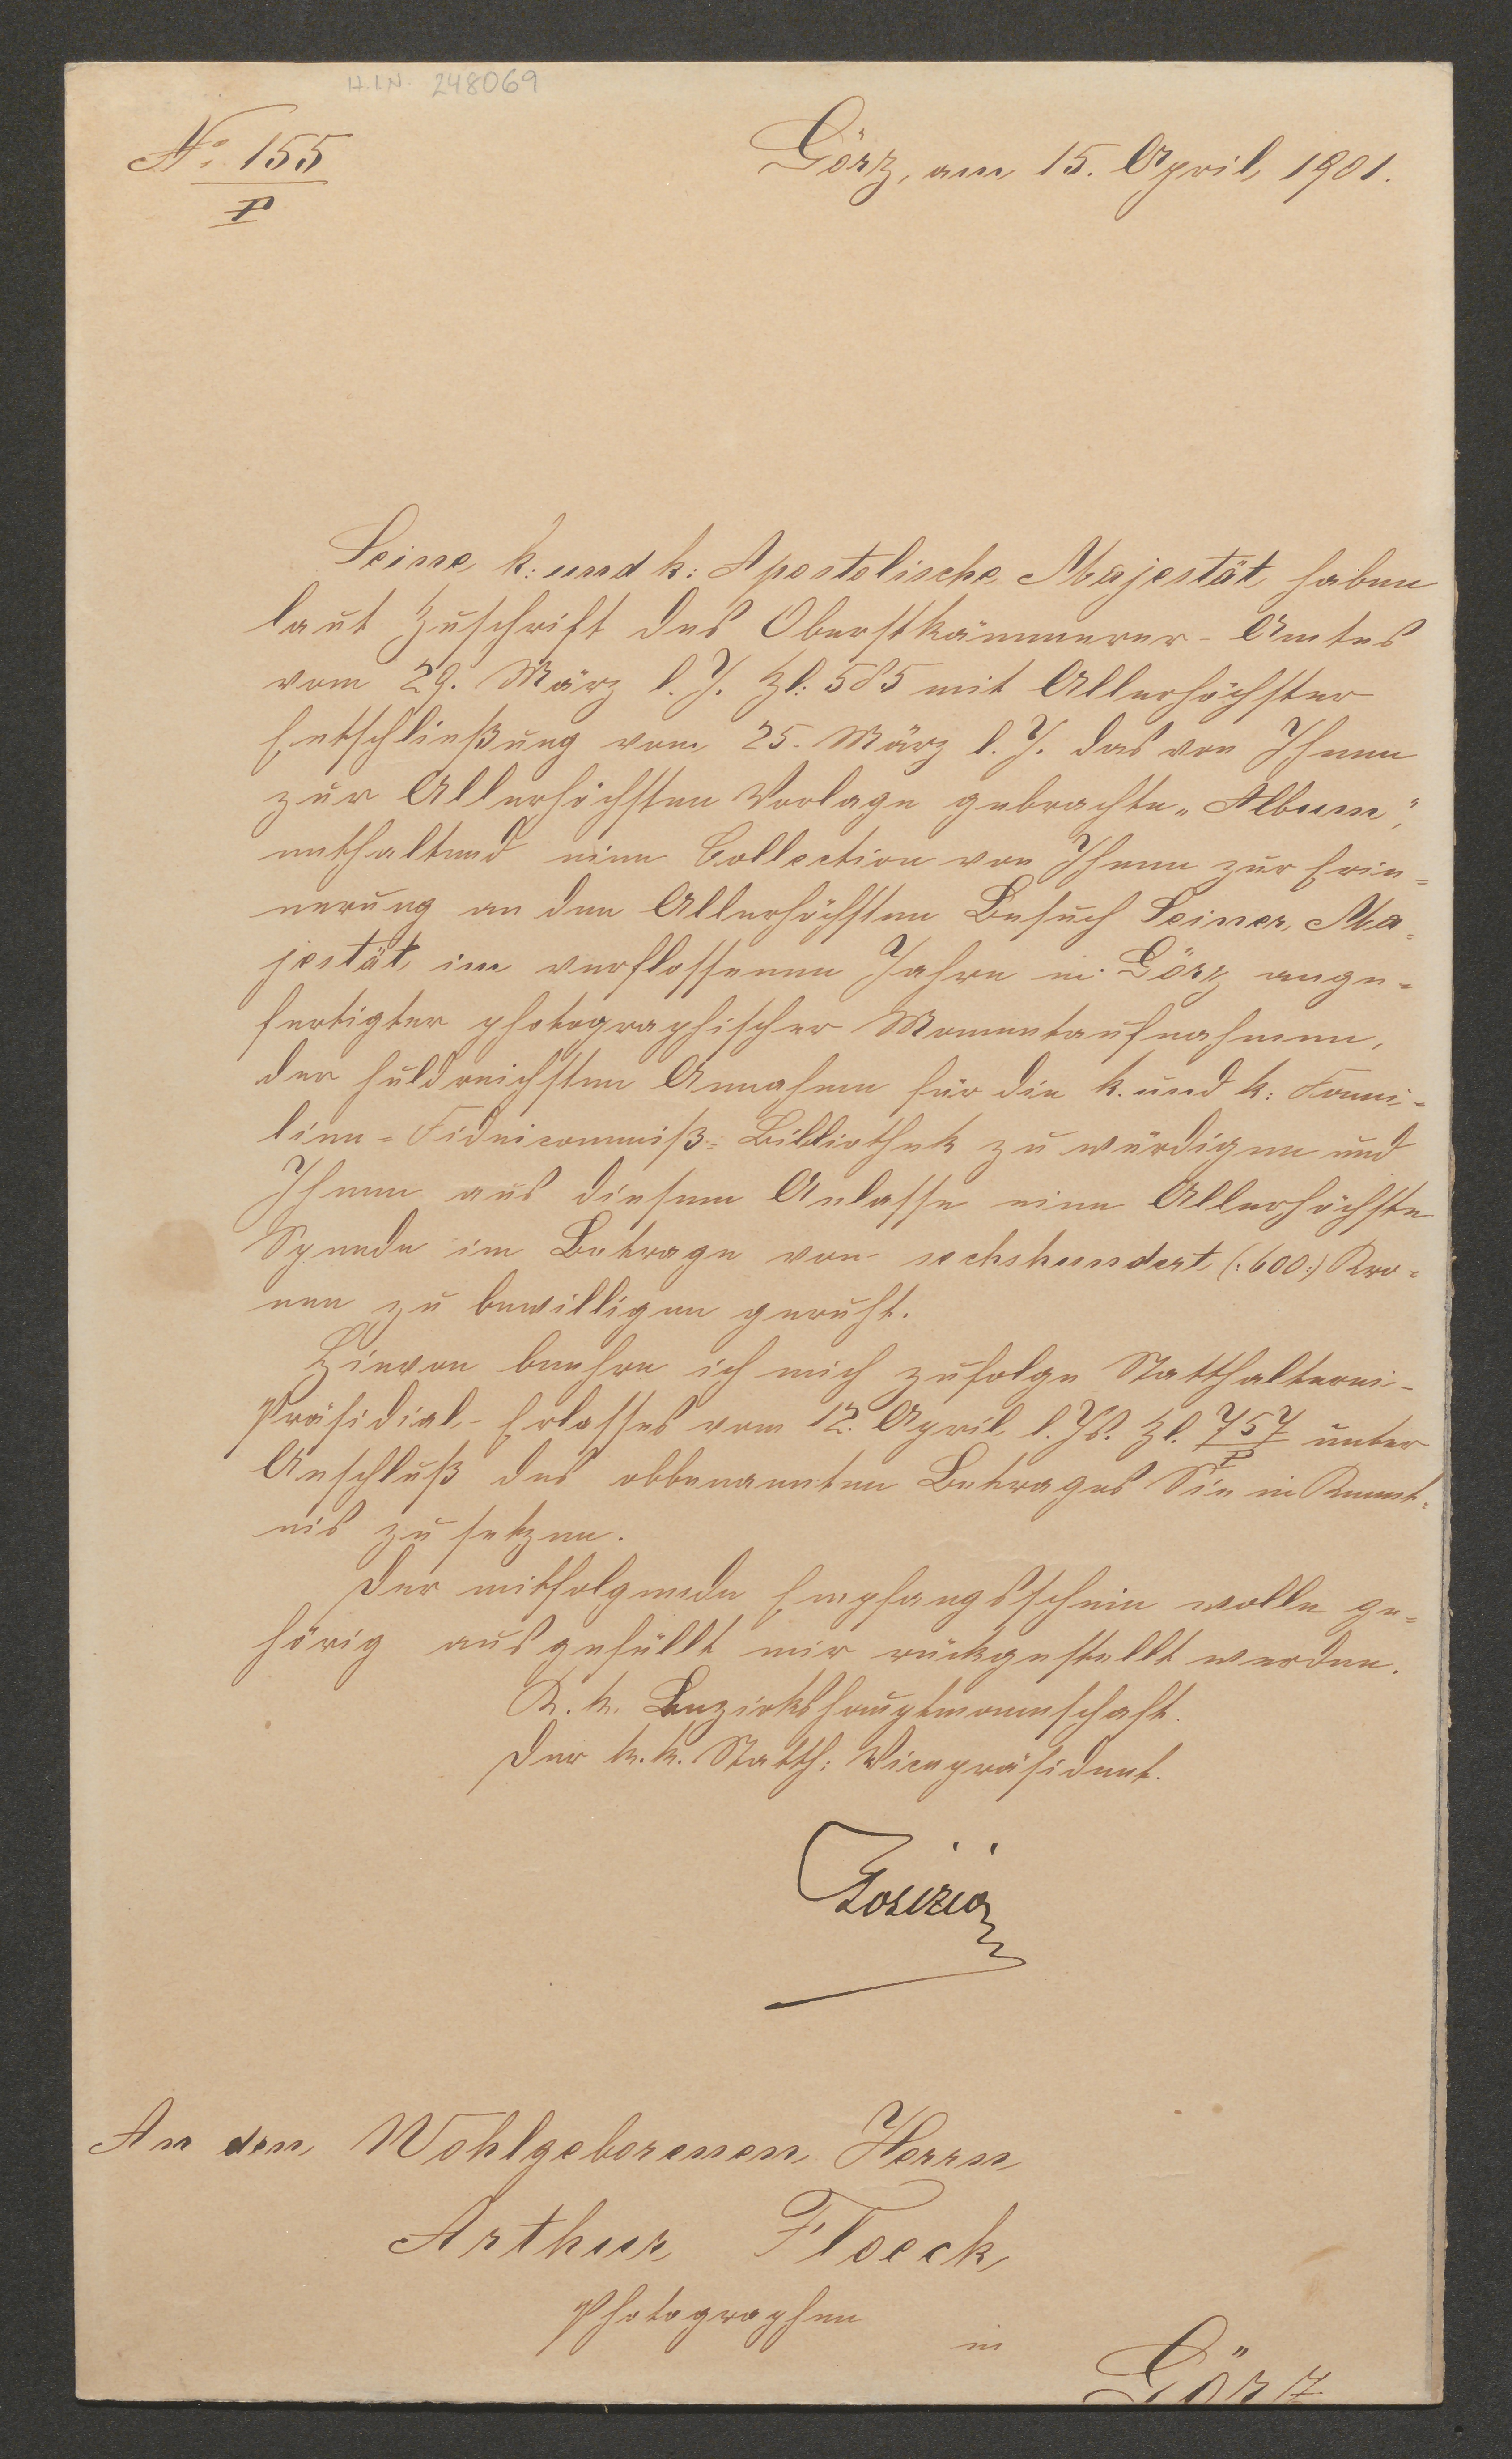 H.I.N. 248069
No. 155
P
Görz, am 15. April 1901.
Seine k: und k: Apostolische Majestät haben
laut Zuschrift des Oberstkämmerer-Amtes
vom 29. März l. J. Zl: 585 mit Allerhöchster
Entschließung vom 25. März l. J. das von Ihnen
zur Allerhöchsten Vorlage gebrachte „Album“,
enthaltend eine Collection von Ihnen zur Erin=
nerung an den Allerhöchsten Besuch Seiner Ma=
jestät im verflossenen Jahre in Görz ange=
fertigter photographischer Momentaufnahmen,
der huldreichsten Annahme für die k. und k: Fami=
lien=Fideicommiß=Bibliothek zu würdigen und
Ihnen aus diesem Anlasse eine Allerhöchste
Spende im Betrage von sechshundert (:600:) Kro=
nen zu bewilligen geruht.
Hievon beehre ich mich zufolge Statthalterei-
Präsidial-Erlasses vom 12. April l. Js. Zl. 757/P unter
Anschluß des obbenannten Betrages Sie in Kennt=
nis zu setzen.
Der mitfolgende Empfangsschein wolle ge=
hörig ausgefüllt mir rückgestellt werden.
K. k. Bezirkshauptmannschaft.
Der k. k. Statth: Vicepräsident.
An den Wohlgeborenen Herrn
Arthur Floeck
Photographen
in
Görz